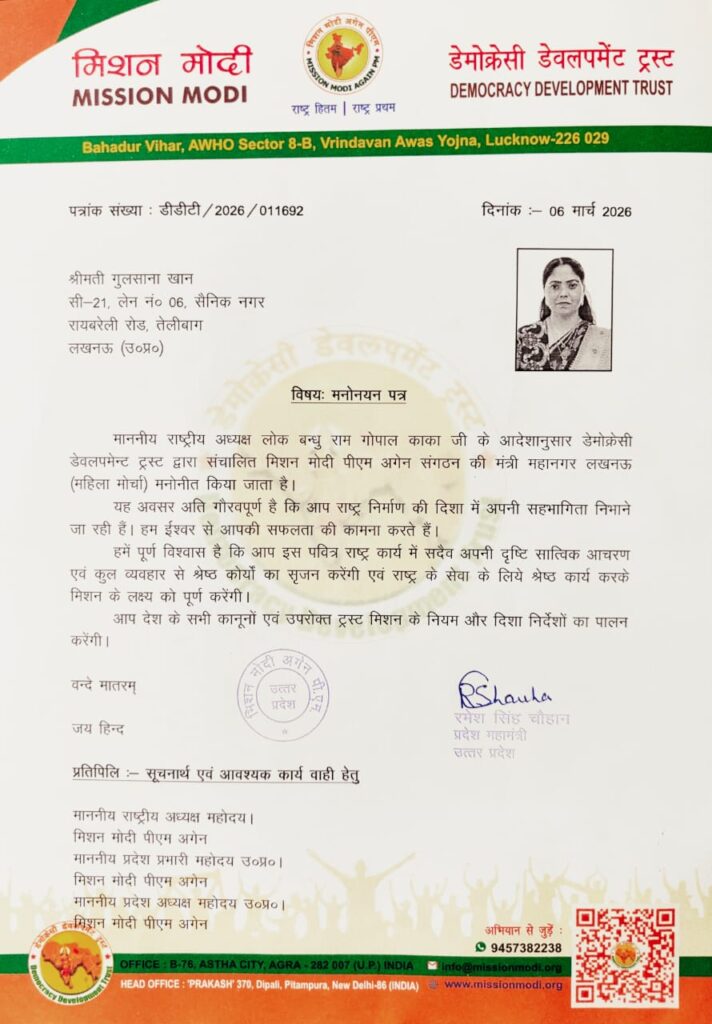 मिशन मोदी
MISSION MODI
मिशन मोदी अगेन पीएम
MISSION MODI AGAIN PM
राष्ट्र हितम | राष्ट्र प्रथम
डेमोक्रेसी डेवलपमेंट ट्रस्ट
DEMOCRACY DEVELOPMENT TRUST
Bahadur Vihar, AWHO Sector 8-B, Vrindavan Awas Yojna, Lucknow-226 029
पत्रांक संख्या : डीडीटी/2026/011692
दिनांक :– 06 मार्च 2026
श्रीमती गुलसाना खान
सी–21, लेन नं० 06, सैनिक नगर
रायबरेली रोड, तेलीबाग
लखनऊ (उ०प्र०)
विषयः मनोनयन पत्र
माननीय राष्ट्रीय अध्यक्ष लोक बन्धु राम गोपाल काका जी के आदेशानुसार डेमोक्रेसी
डेवलपमेन्ट ट्रस्ट द्वारा संचालित मिशन मोदी पीएम अगेन संगठन की मंत्री महानगर लखनऊ
(महिला मोर्चा) मनोनीत किया जाता है।
यह अवसर अति गोरवपूर्ण है कि आप राष्ट्र निर्माण की दिशा में अपनी सहभागिता निभाने
जा रही हैं। हम ईश्वर से आपकी सफलता की कामना करते हैं।
हमें पूर्ण विश्वास है कि आप इस पवित्र राष्ट्र कार्य में सदैव अपनी दृष्टि सात्विक आचरण
एवं कुल व्यवहार से श्रेष्ठ कोर्यों का सृजन करेंगी एवं राष्ट्र के सेवा के लिये श्रेष्ठ कार्य करके
मिशन के लक्ष्य को पूर्ण करेंगी।
आप देश के सभी कानूनों एवं उपरोक्त ट्रस्ट मिशन के नियम और दिशा निर्देशों का पालन
करेंगी।
वन्दे मातरम्
जय हिन्द
मिशन मोदी अगेन पीएम
उत्तर
प्रदेश
रमेश सिंह चौहान
प्रदेश महामंत्री
उत्तर प्रदेश
प्रतिपिलि :– सूचनार्थ एवं आवश्यक कार्य वाही हेतु
माननीय राष्ट्रीय अध्यक्ष महोदय।
मिशन मोदी पीएम अगेन
माननीय प्रदेश प्रभारी महोदय उ०प्र०।
मिशन मोदी पीएम अगेन
माननीय प्रदेश अध्यक्ष महोदय उ०प्र०।
मिशन मोदी पीएम अगेन
अभियान से जुड़ें :
9457382238
डेमोक्रेसी डेवलपमेंट ट्रस्ट
Democracy Development Trust
OFFICE : B-76, ASTHA CITY, AGRA - 282 007 (U.P.) INDIA
info@missionmodi.org
HEAD OFFICE : 'PRAKASH' 370, Dipali, Pitampura, New Delhi-86 (INDIA)
www.missionmodi.org